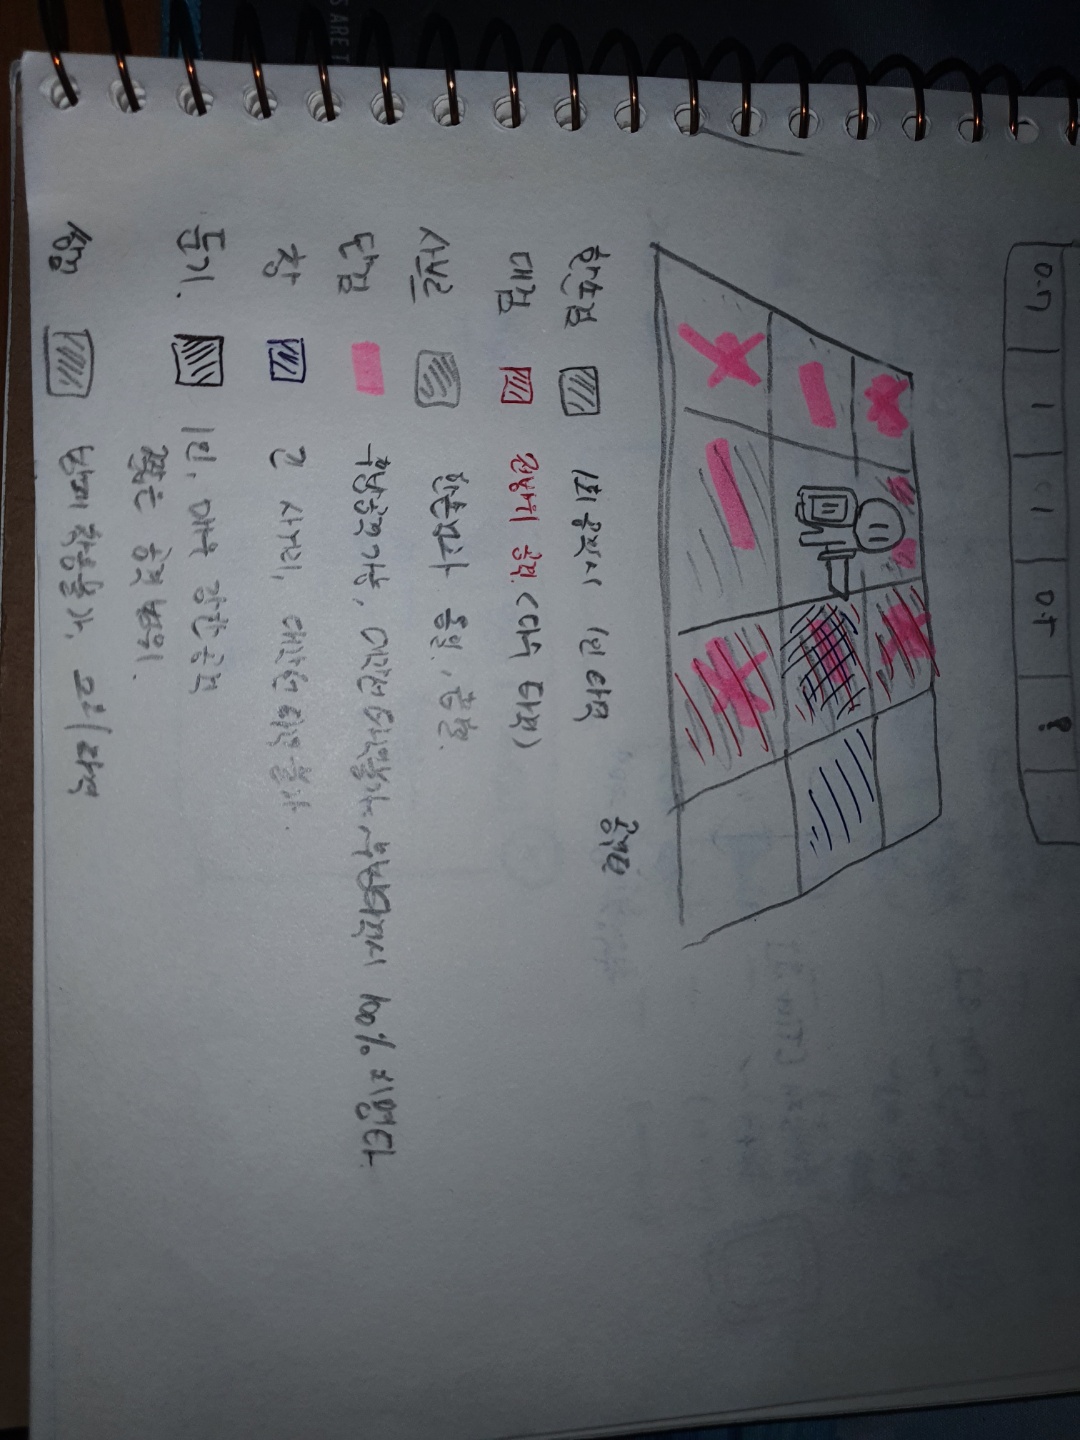 0.7 1 1 0.5 ?
공격턴
한손검 1회 공격시 1인 타격
대검 전방위 공격. (다수 타격)
사브르 한손검과 동일,
단검 후방공격가능, 대각선 타격불가, 후방타격시 100% 치명타
창 긴 사거리, 대각선 타격 불가.
둔기. 1인, 매우 강한 공격
짧은 공격 범위.
쌍검 방패 착용불가, 타격
S ARE T